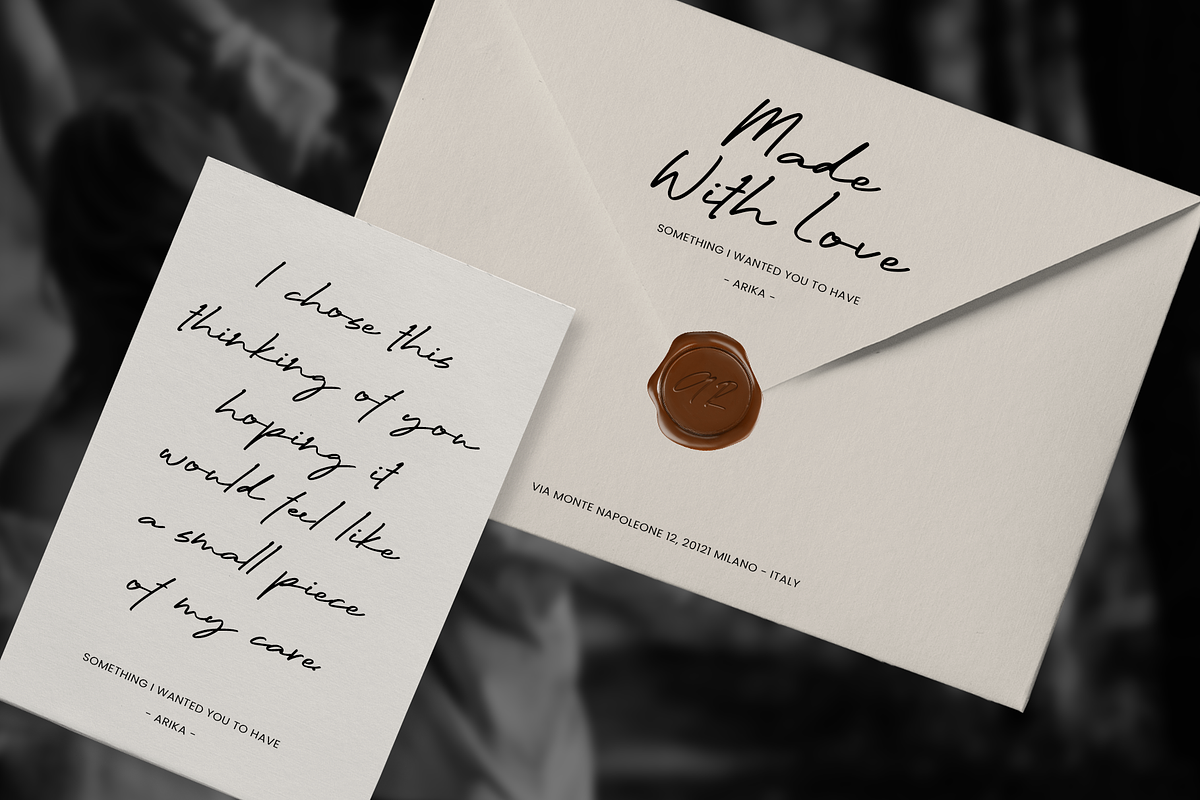 Made
With Love
SOMETHING I WANTED YOU TO HAVE
- ARIKA -
AR
VIA MONTE NAPOLEONE 12, 20121 MILANO - ITALY
I chose this
thinking of you
hoping it
would feel like
a small piece
of my care.
SOMETHING I WANTED YOU TO HAVE
- ARIKA -